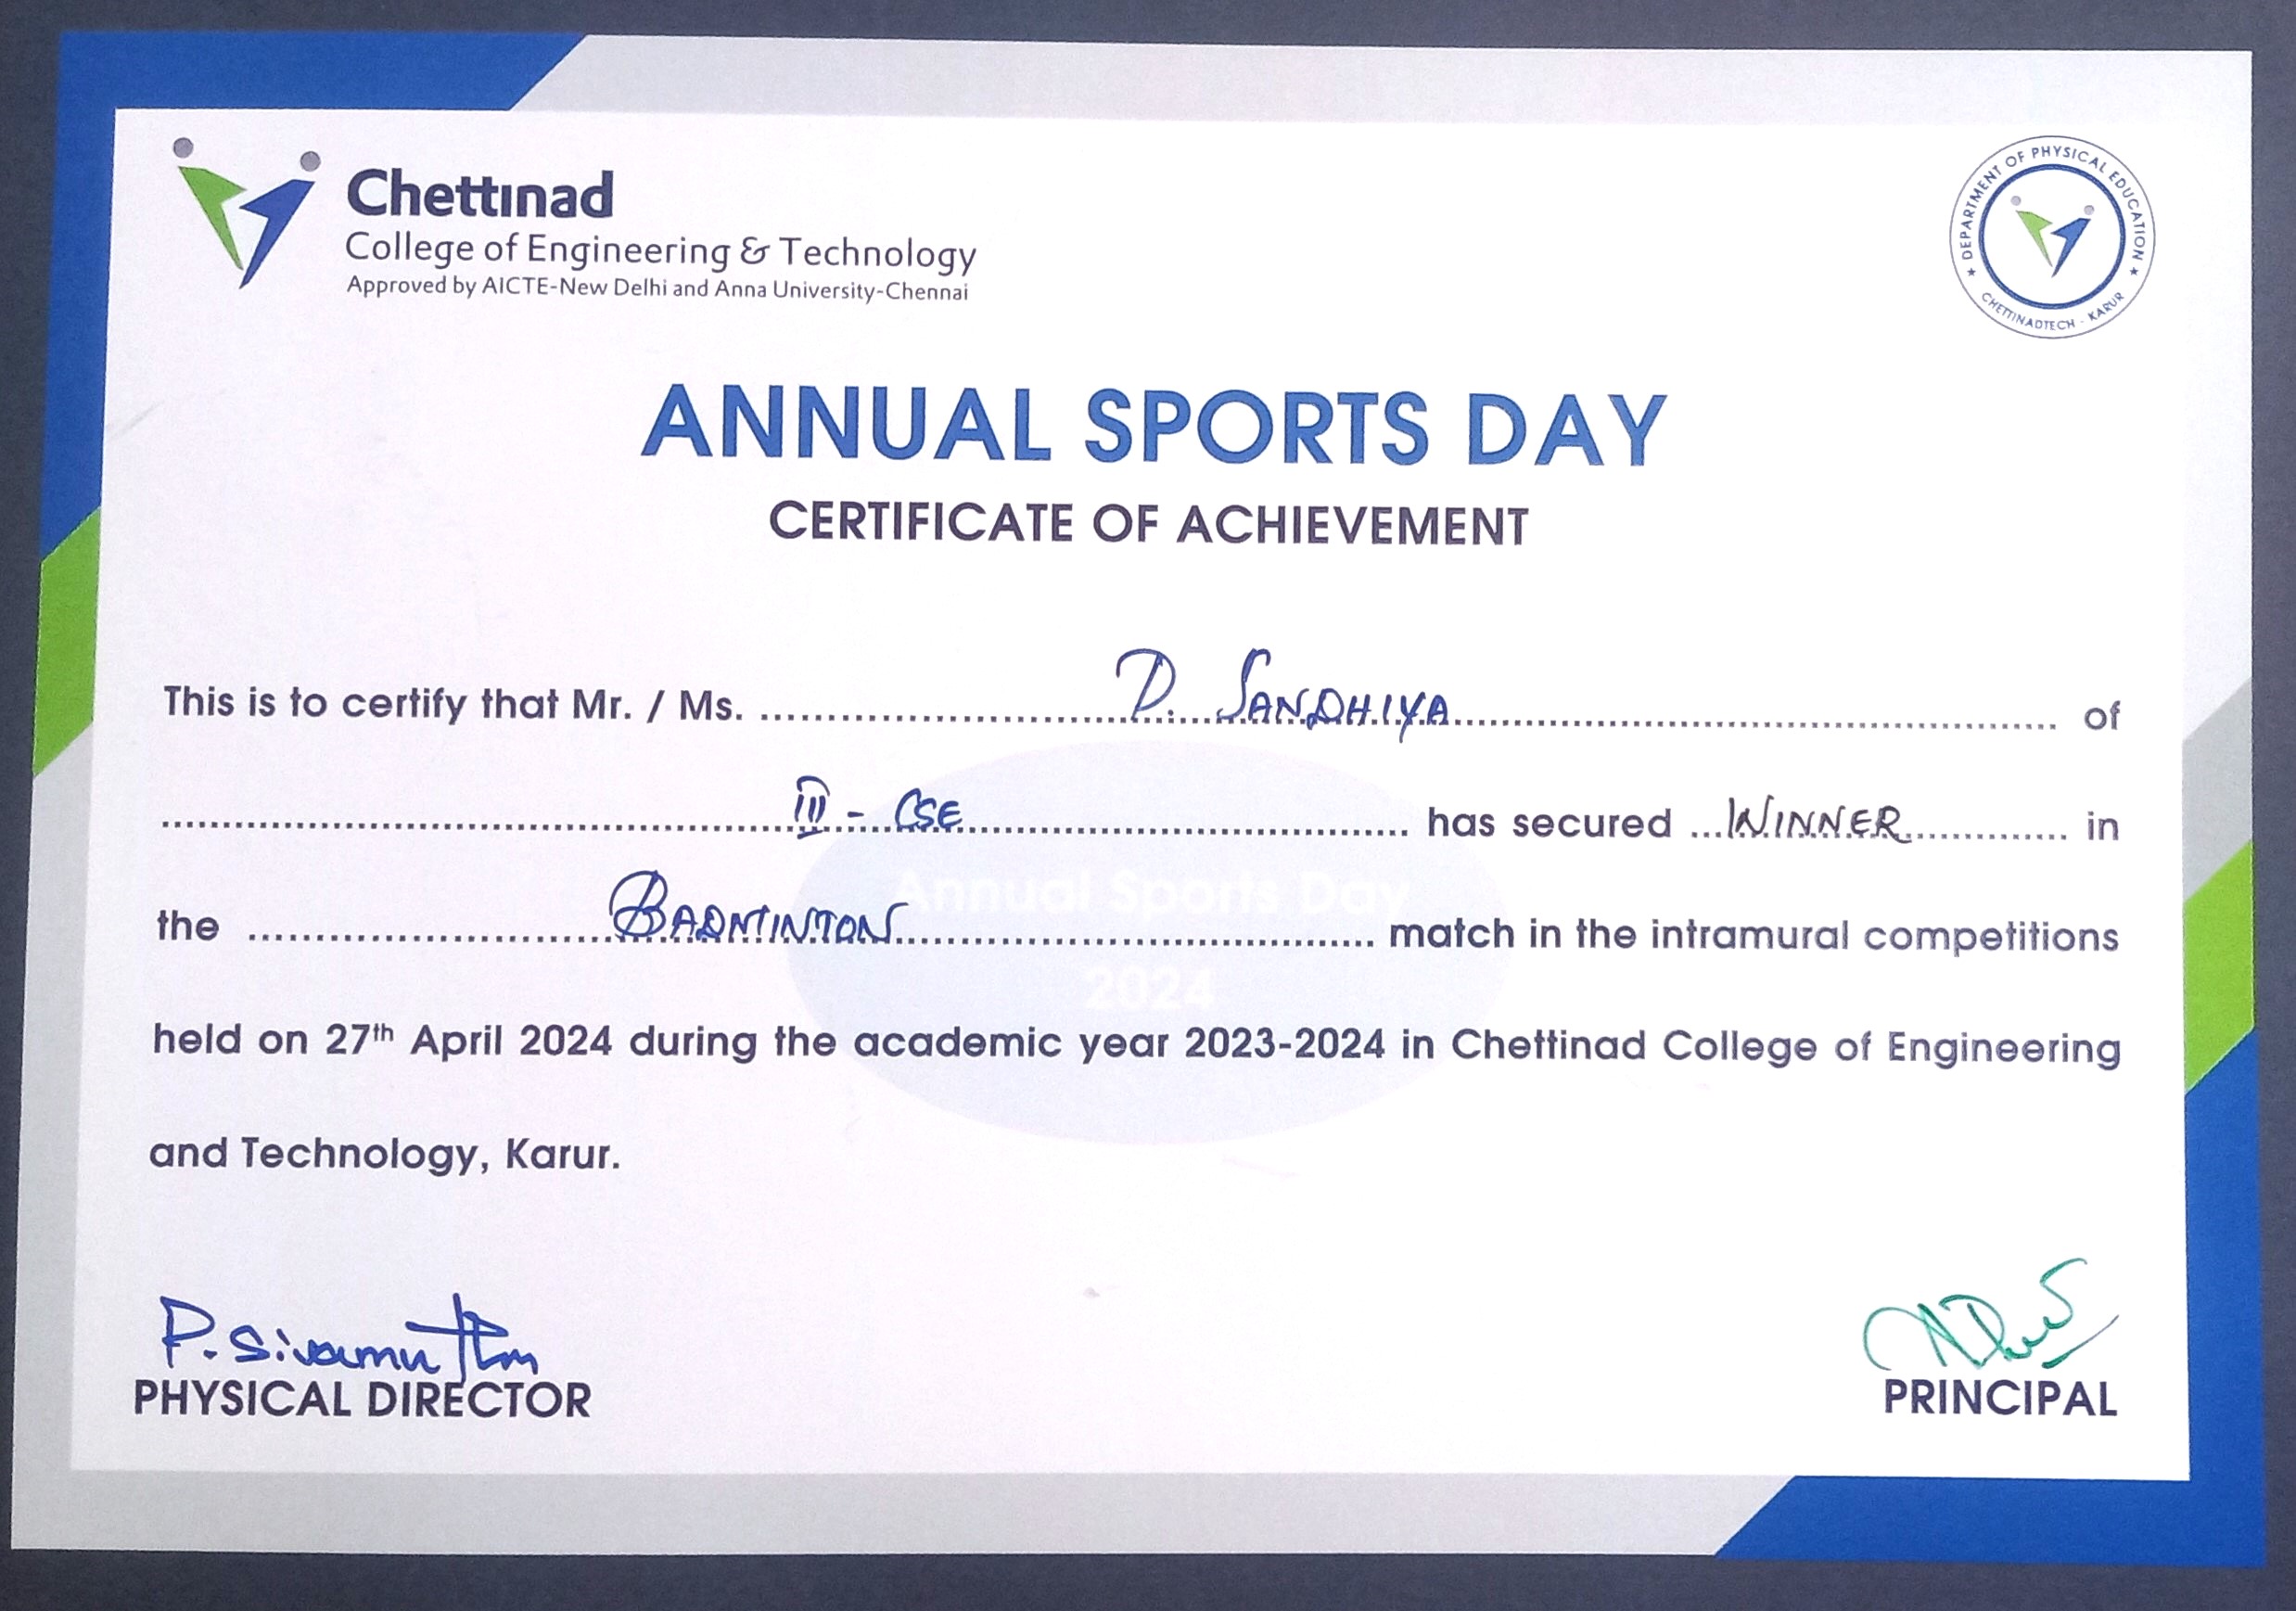 Chettinad
College of Engineering & Technology
Approved by AICTE-New Delhi and Anna University-Chennai
★ DEPARTMENT OF PHYSICAL EDUCATION ★
CHETTINADTECH - KARUR
ANNUAL SPORTS DAY
CERTIFICATE OF ACHIEVEMENT
This is to certify that Mr. / Ms. D. SANDHIYA of
III - CSE has secured WINNER in
the BADMINTON match in the intramural competitions
Annual Sports Day
2024
held on 27th April 2024 during the academic year 2023-2024 in Chettinad College of Engineering
and Technology, Karur.
P. Sivamuthu
PHYSICAL DIRECTOR
PRINCIPAL